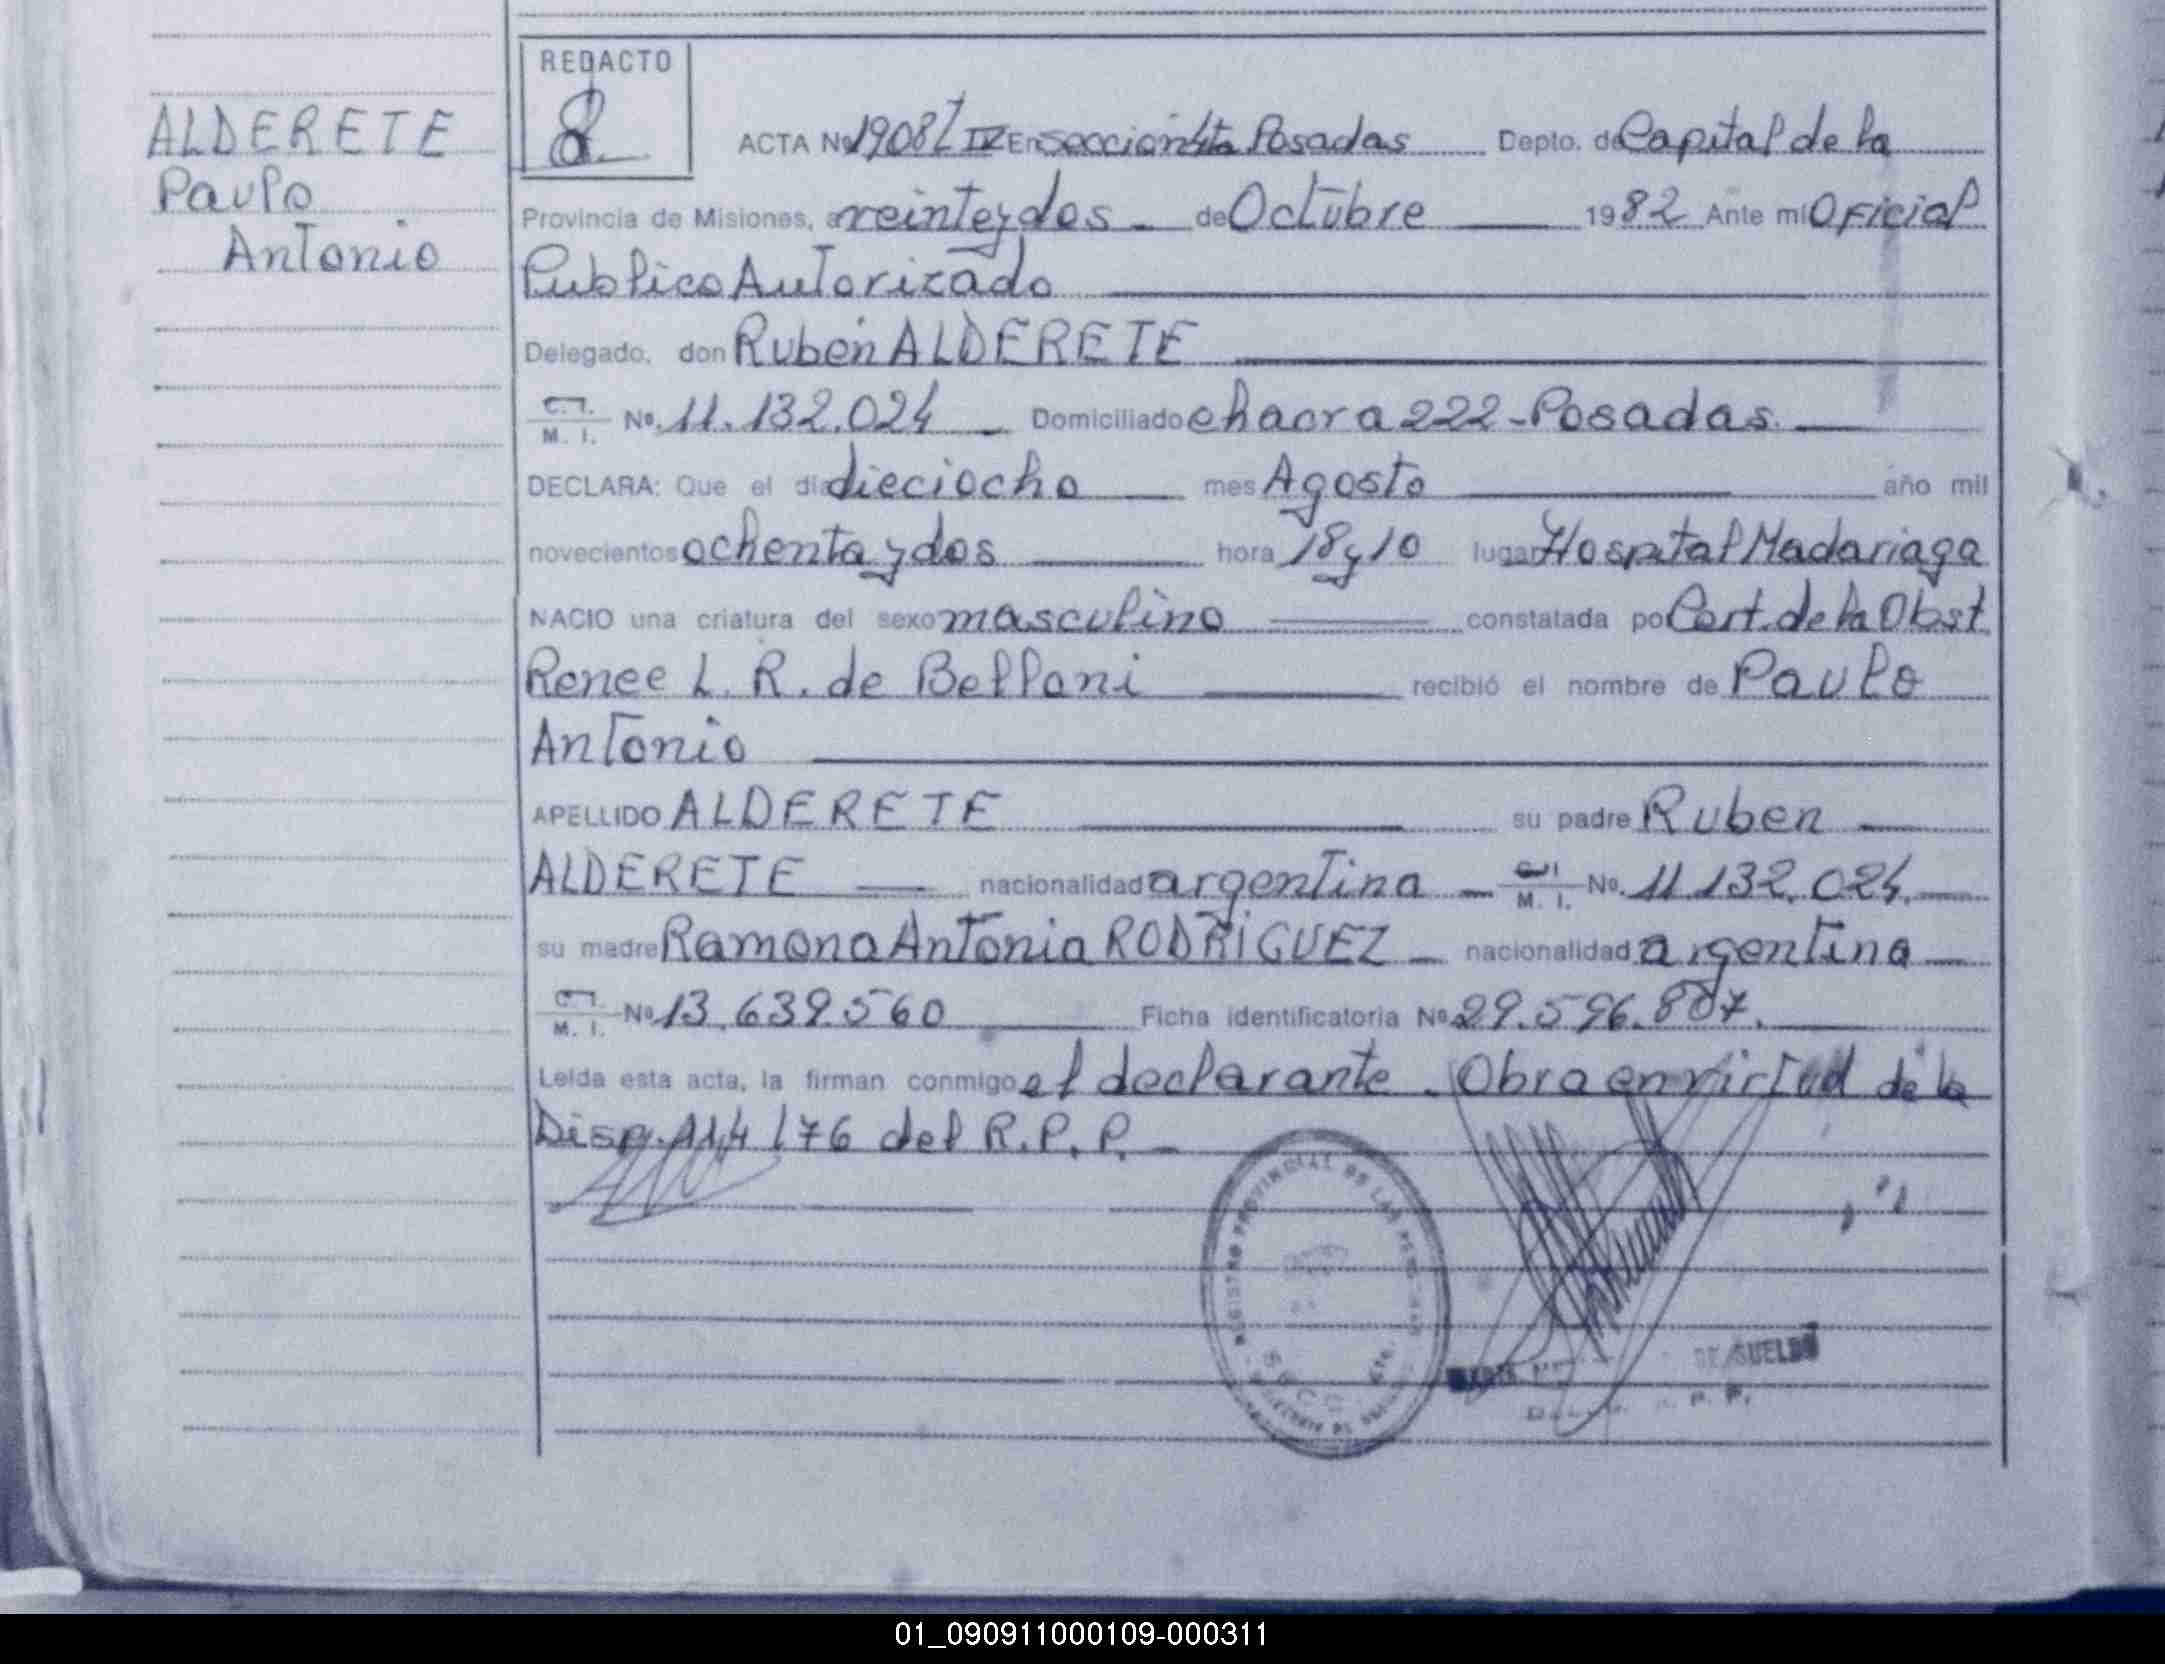 REDACTO
ALDERETE
Paulo
Antonio
ACTA Nº 1908 T IV En sección 4ta Posadas Depto. de Capital de la
Provincia de Misiones, a veinte y dos de Octubre 1982 Ante mi Oficial
Publico Autorizado
Delegado, don Ruben ALDERETE
C.I. M. I. No. 11.132.024 Domiciliado chacra 222 - Posadas.
DECLARA: Que el día dieciocho mes Agosto año mil
novecientos ochenta y dos hora 18 y 10 lugar Hospital Madariaga
NACIO una criatura del sexo masculino constatada po Cert. de la Obst
Renee L. R. de Bellani recibió el nombre de Paulo
Antonio
APELLIDO ALDERETE su padre Ruben
ALDERETE nacionalidad argentina M. I. No. 11.132.024.
su madre Ramona Antonia RODRIGUEZ nacionalidad argentina
M. I. No 13.639.560 Ficha identificatoria No. 29.596.807.
Leída esta acta, la firman conmigo el declarante. Obra en virtud de la
Disp. 114/76 del R.P.P.
REGISTRO PROVINCIAL DE LAS PERSONAS
DE SUELDO
01_090911000109-000311